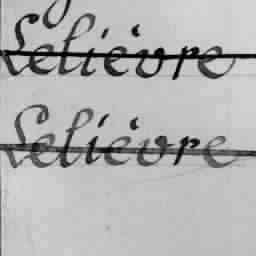 Leliévre
Leliévre